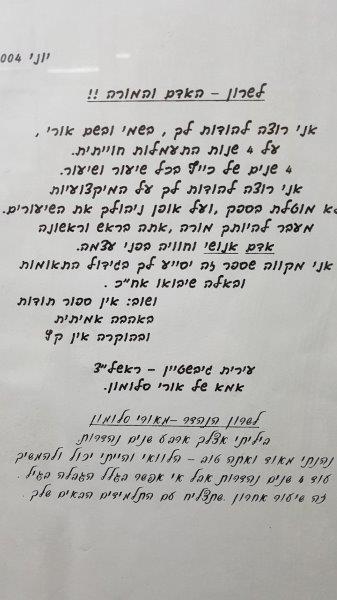 יוני 004
לשרון – האדם והמורה !!
אני רוצה להודות לך , בשמי ובשם אורי ,
על 4 שנות התעמלות חווייתית.
4 שנים של כייף בכל שיעור ושיעור.
אני רוצה להודות לך על המיקצועיות
לא מוטלת בספק ,ועל אופן ניהולך את השיעורים.
מעבר להיותך מורה ,אתה בראש וראשונה
אדם אנושי וחוויה בפני עצמה.
אני מקווה שספר זה יסייע לך בגידול התאומות
ובאלה שיבואו אח"כ .
ושוב: אין ספור תודות
באהבה אמיתית
ובהוקרה אין קץ
עירית גיבשטיין – ראשל"צ
אמא של אורי סלומון.
לשרון הנהדר –מאורי סלומון
ביליתי אצלך ארבע שנים נהדרות
נהנתי מאוד ואתה טוב – הלוואי והייתי יכול ולהמשיך
עוד 4 שנים נהדרות אבל אי אפשר בגלל הגבלה בגיל .
זה שיעור אחרון .שתצליח עם התלמידים הבאים שלך .